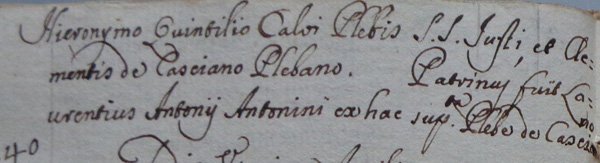 Hieronymo Quintilio Calvi Plebis S.S. Justi, et Cle-
mentis de Casciano Plebano. Patrinus fuit La-
urentius Antonij Antonini ex hac sup.ta Plebe de Cascia
no
40